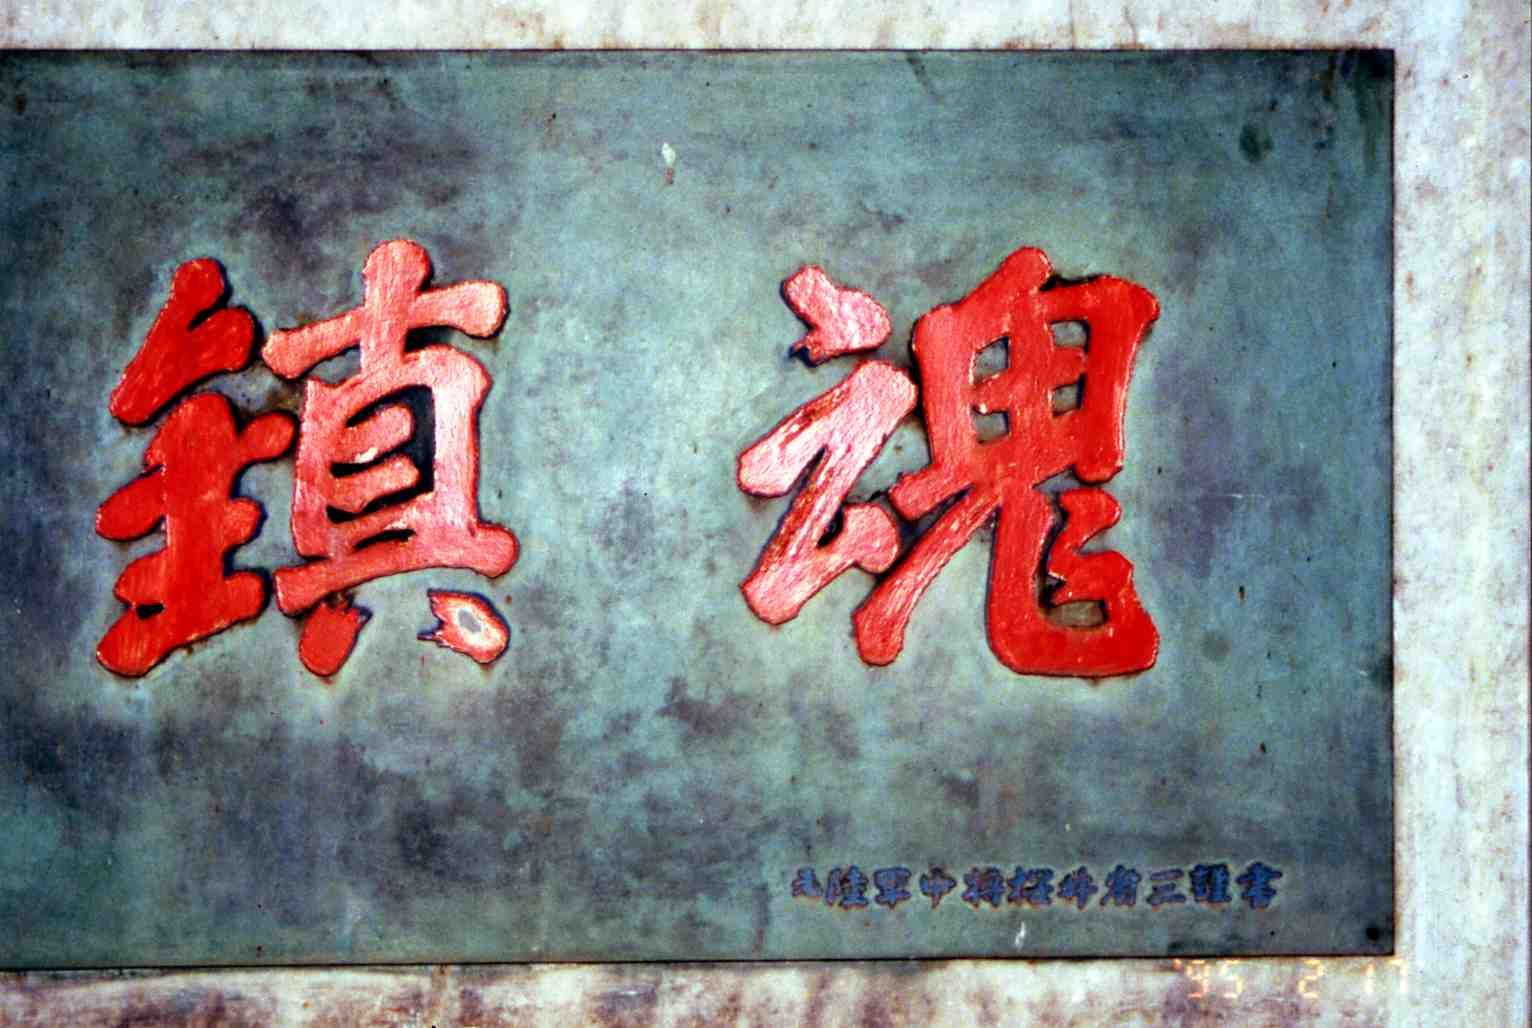 鎮魂
元陸軍中将桜井省三謹書
'95 2 17